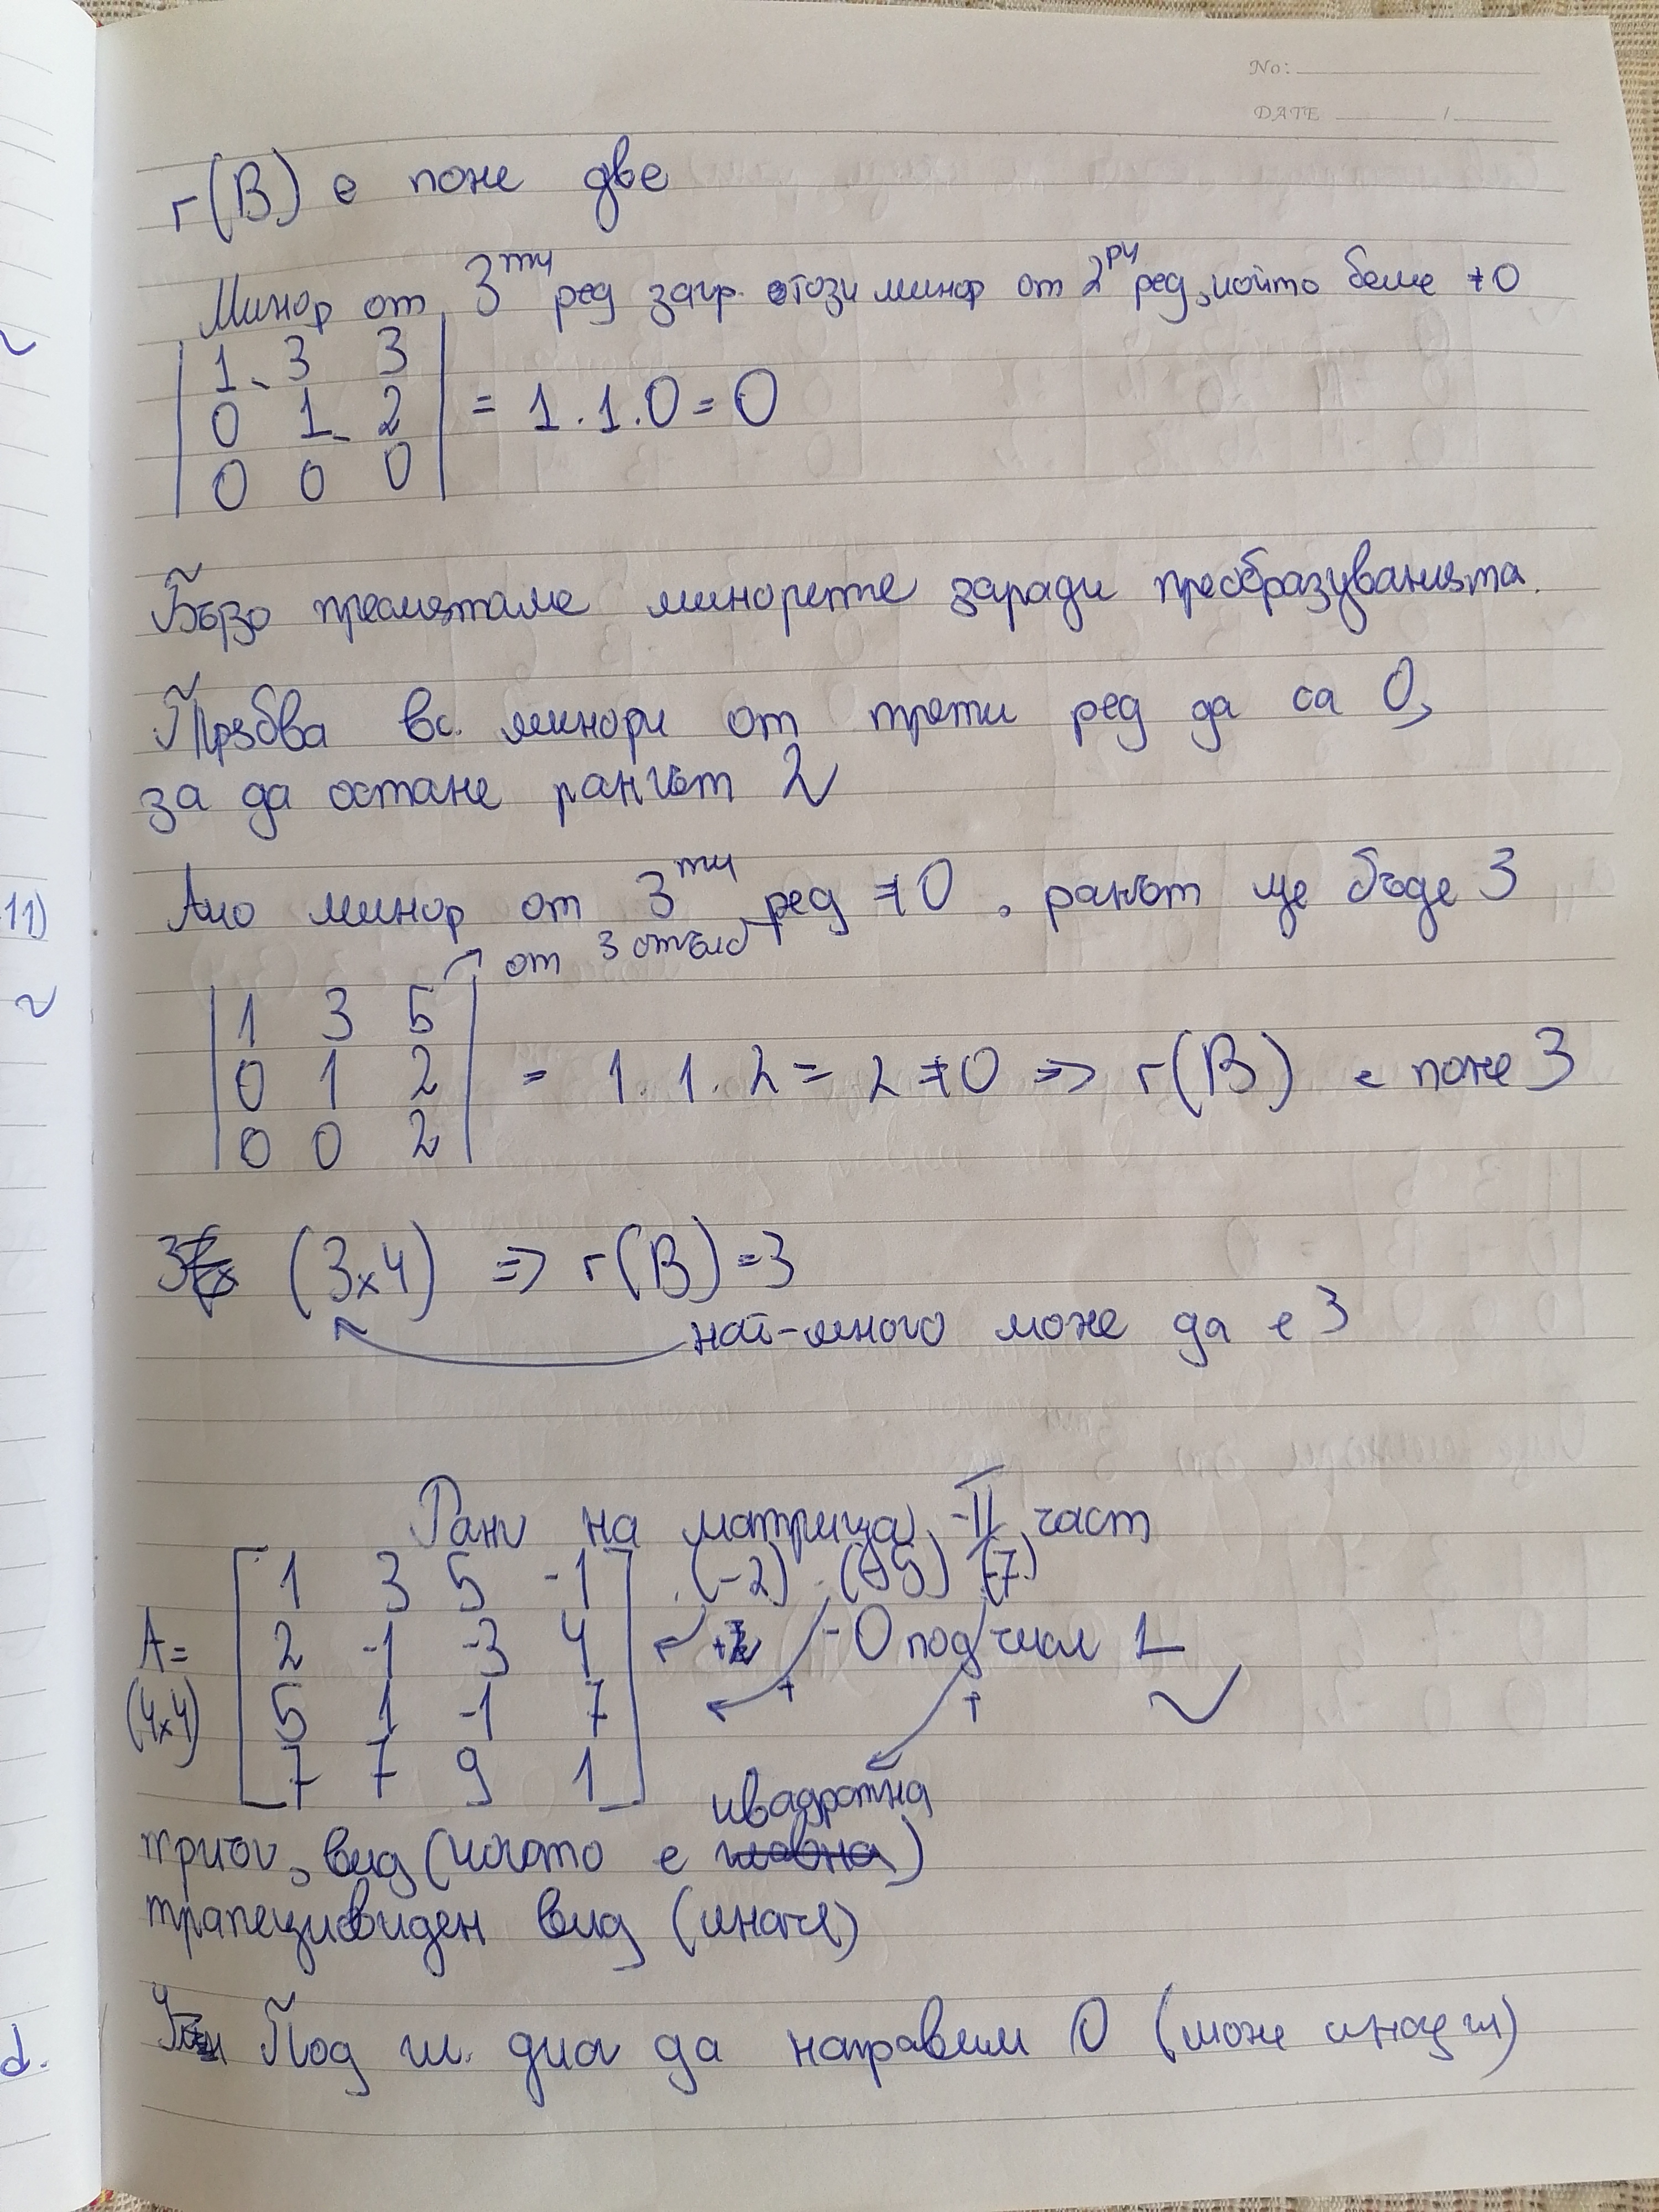 No:
DATE /
r(B) е поне две
Минор от 3ти ред загр. този минор от 2ри ред, който беше ≠0
| 1 3 3 |
| 0 1 2 | = 1.1.0=0
| 0 0 0 |
Бързо пресмятаме минорете заради преобразуванията.
Трябва вс. минори от трети ред да са 0,
за да остане рангът 2
Ако минор от 3ти ред ≠0, рангът ще бъде 3
→ от 3 стълб
| 1 3 5 |
| 0 1 2 | = 1.1.2=2≠0 => r(B) е поне 3
| 0 0 2 |
(3x4) => r(B)=3
най-много може да е 3
Ранг на матрица, -II част
1 3 5 -1 .(-2) .(-5) (-7)
A= 2 -1 -3 4 - 0 под 1
(4x4) 5 1 -1 7 +
7 7 9 1
квадратна
триъг, вид (когато е главна)
трапецовиден вид (иначе)
Под гл. диаг да направим 0 (може и над гл)
11)
d.